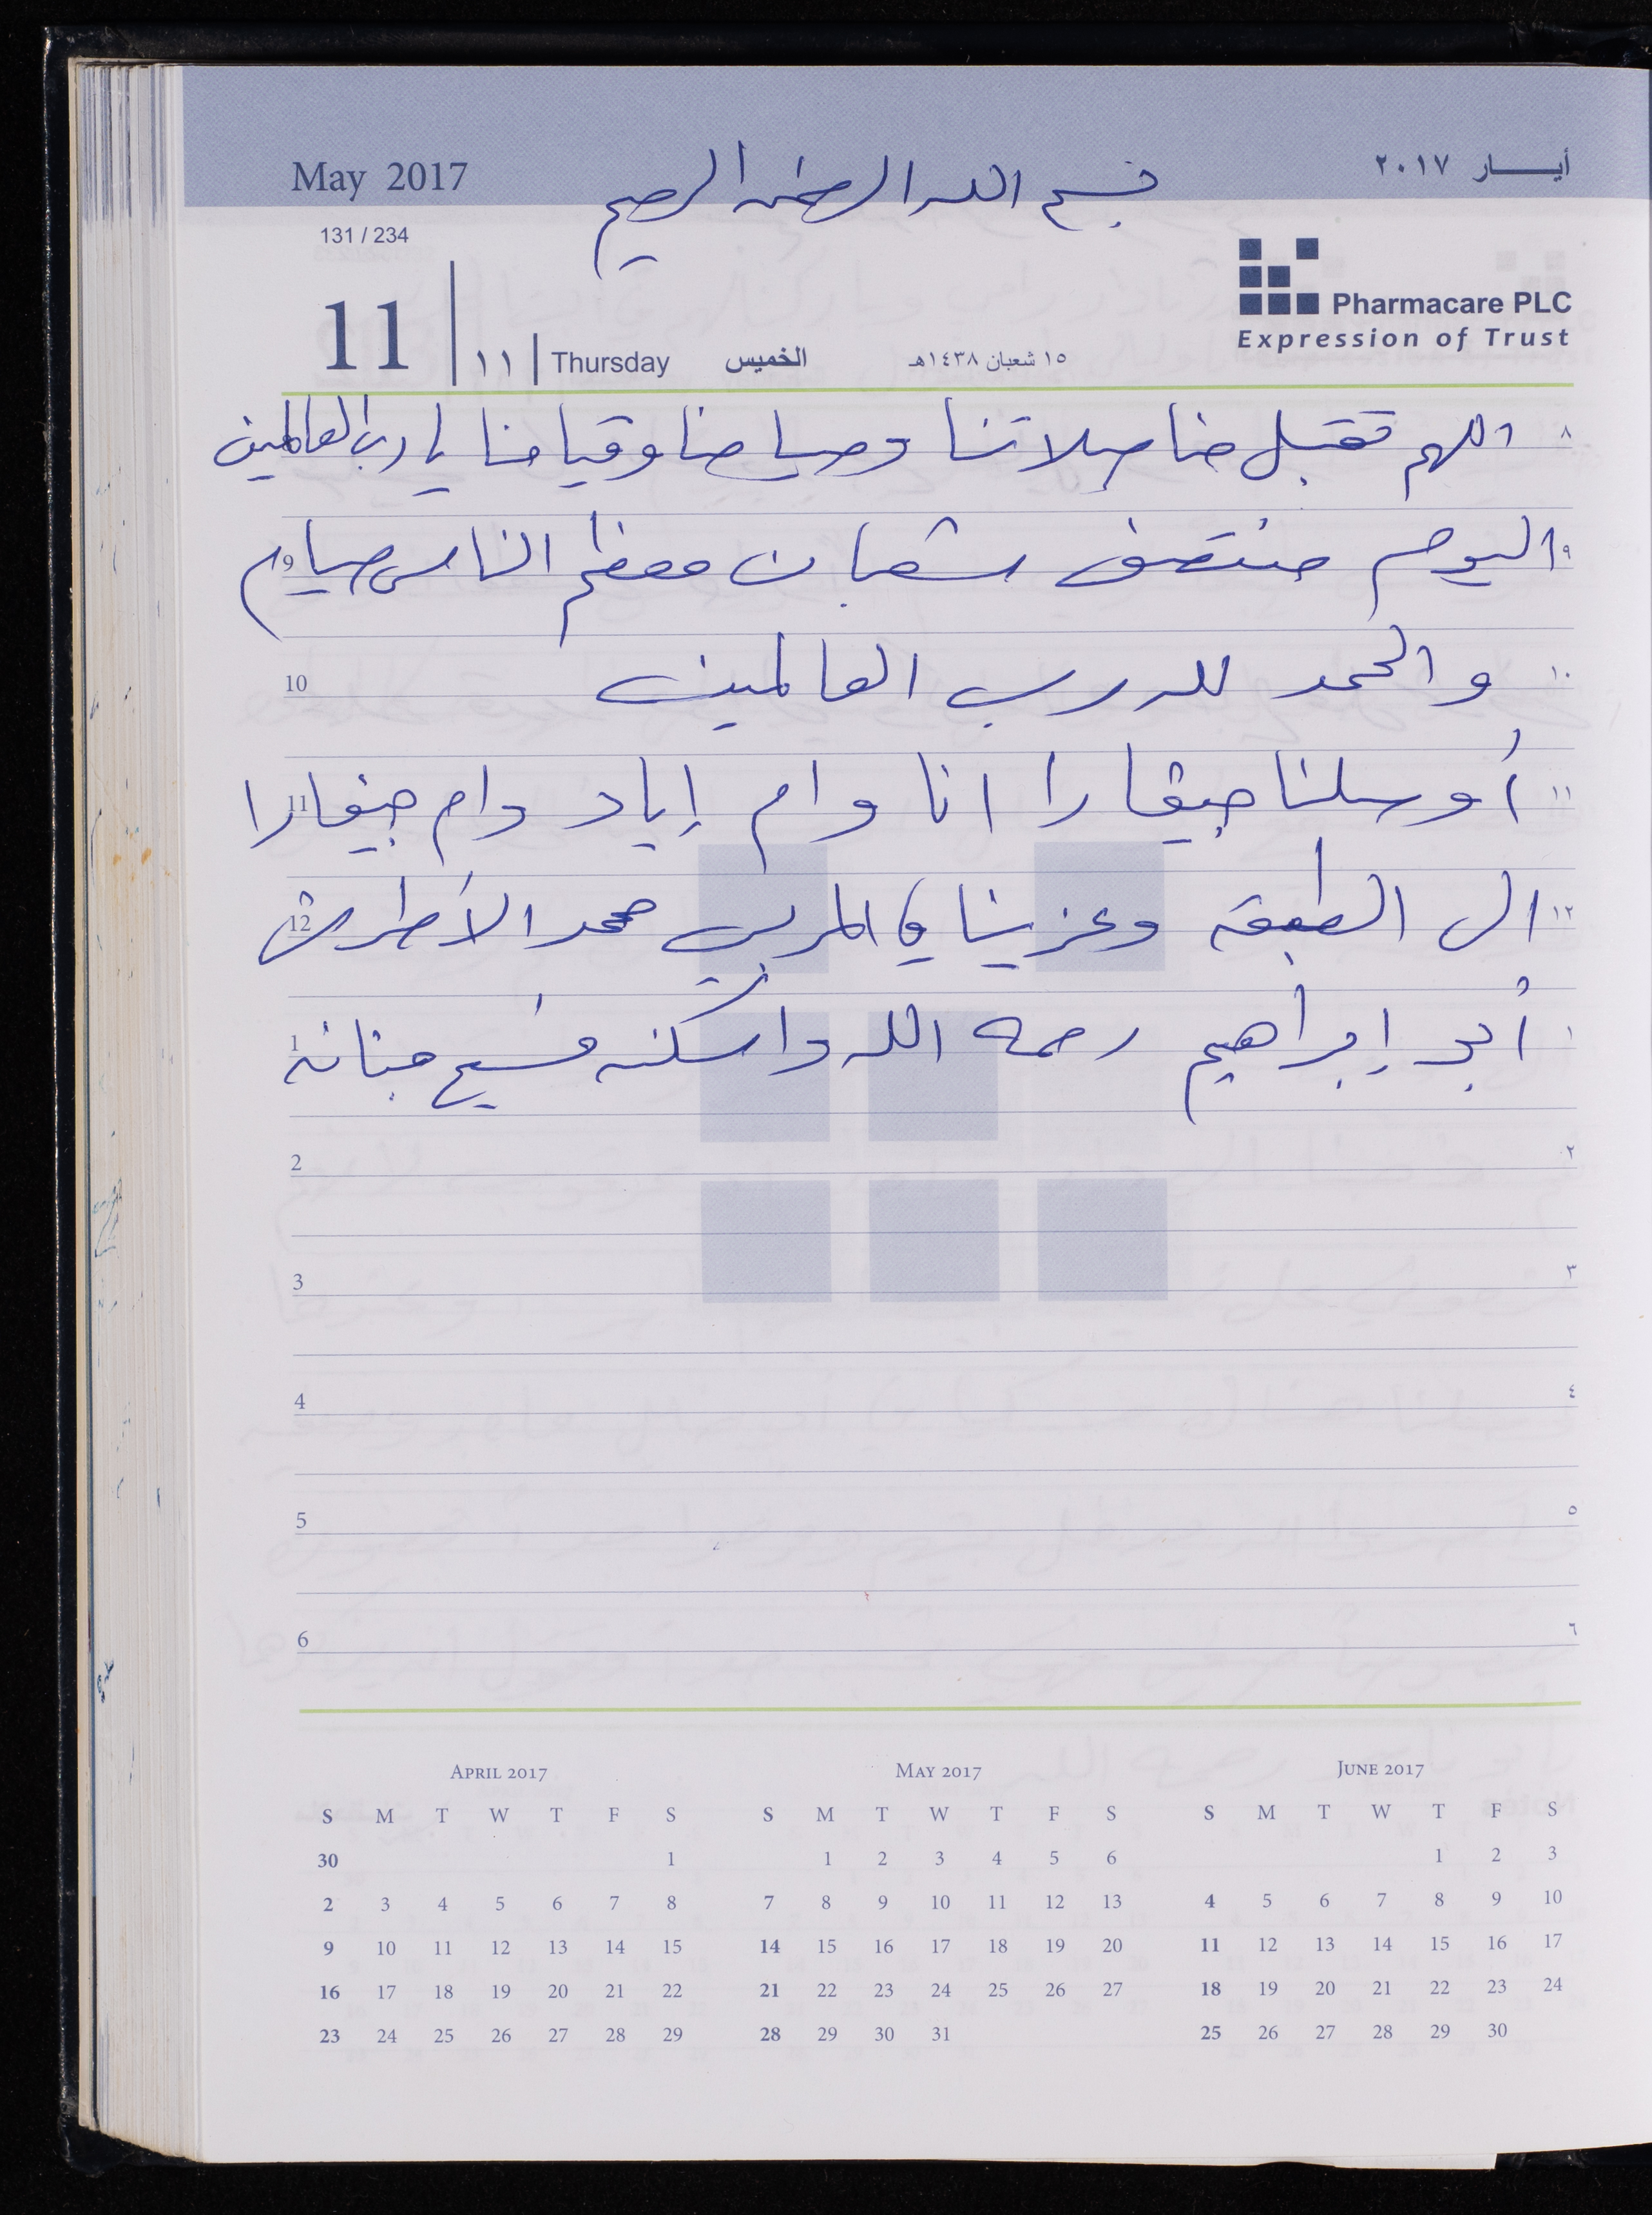 May 2017 بسم الله الرحمن الرحيم أيـــار ٢٠١٧
131 / 234
Pharmacare PLC
Expression of Trust
11 ١١ Thursday الخميس ١٥ شعبان ١٤٣٨هـ
٨ اللهم تقبل منا صلاتنا وصيامنا وقيامنا يا رب العالمين
٩ اليوم منتصف شعبان معظم الناس صيام 9
١٠ والحمد لله رب العالمين 10
١١ أرسلنا جيفارا انا وام إياد وام جيفارا 11
١٢ الى وعزينا في المربي محمد الأطرش 12
١ أبو إبراهيم رحمه الله واسكنه فسيح جنانه 1
2 ٢
3 ٣
4 ٤
5 ٥
6 ٦
April 2017 May 2017 June 2017
S M T W T F S S M T W T F S S M T W T F S
30 1 1 2 3 4 5 6 1 2 3
2 3 4 5 6 7 8 7 8 9 10 11 12 13 4 5 6 7 8 9 10
9 10 11 12 13 14 15 14 15 16 17 18 19 20 11 12 13 14 15 16 17
16 17 18 19 20 21 22 21 22 23 24 25 26 27 18 19 20 21 22 23 24
23 24 25 26 27 28 29 28 29 30 31 25 26 27 28 29 30